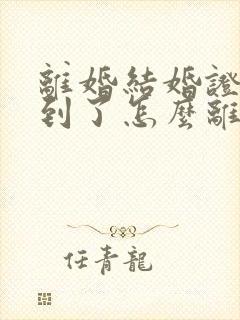 離婚結婚證
到了怎麼離
任青龍